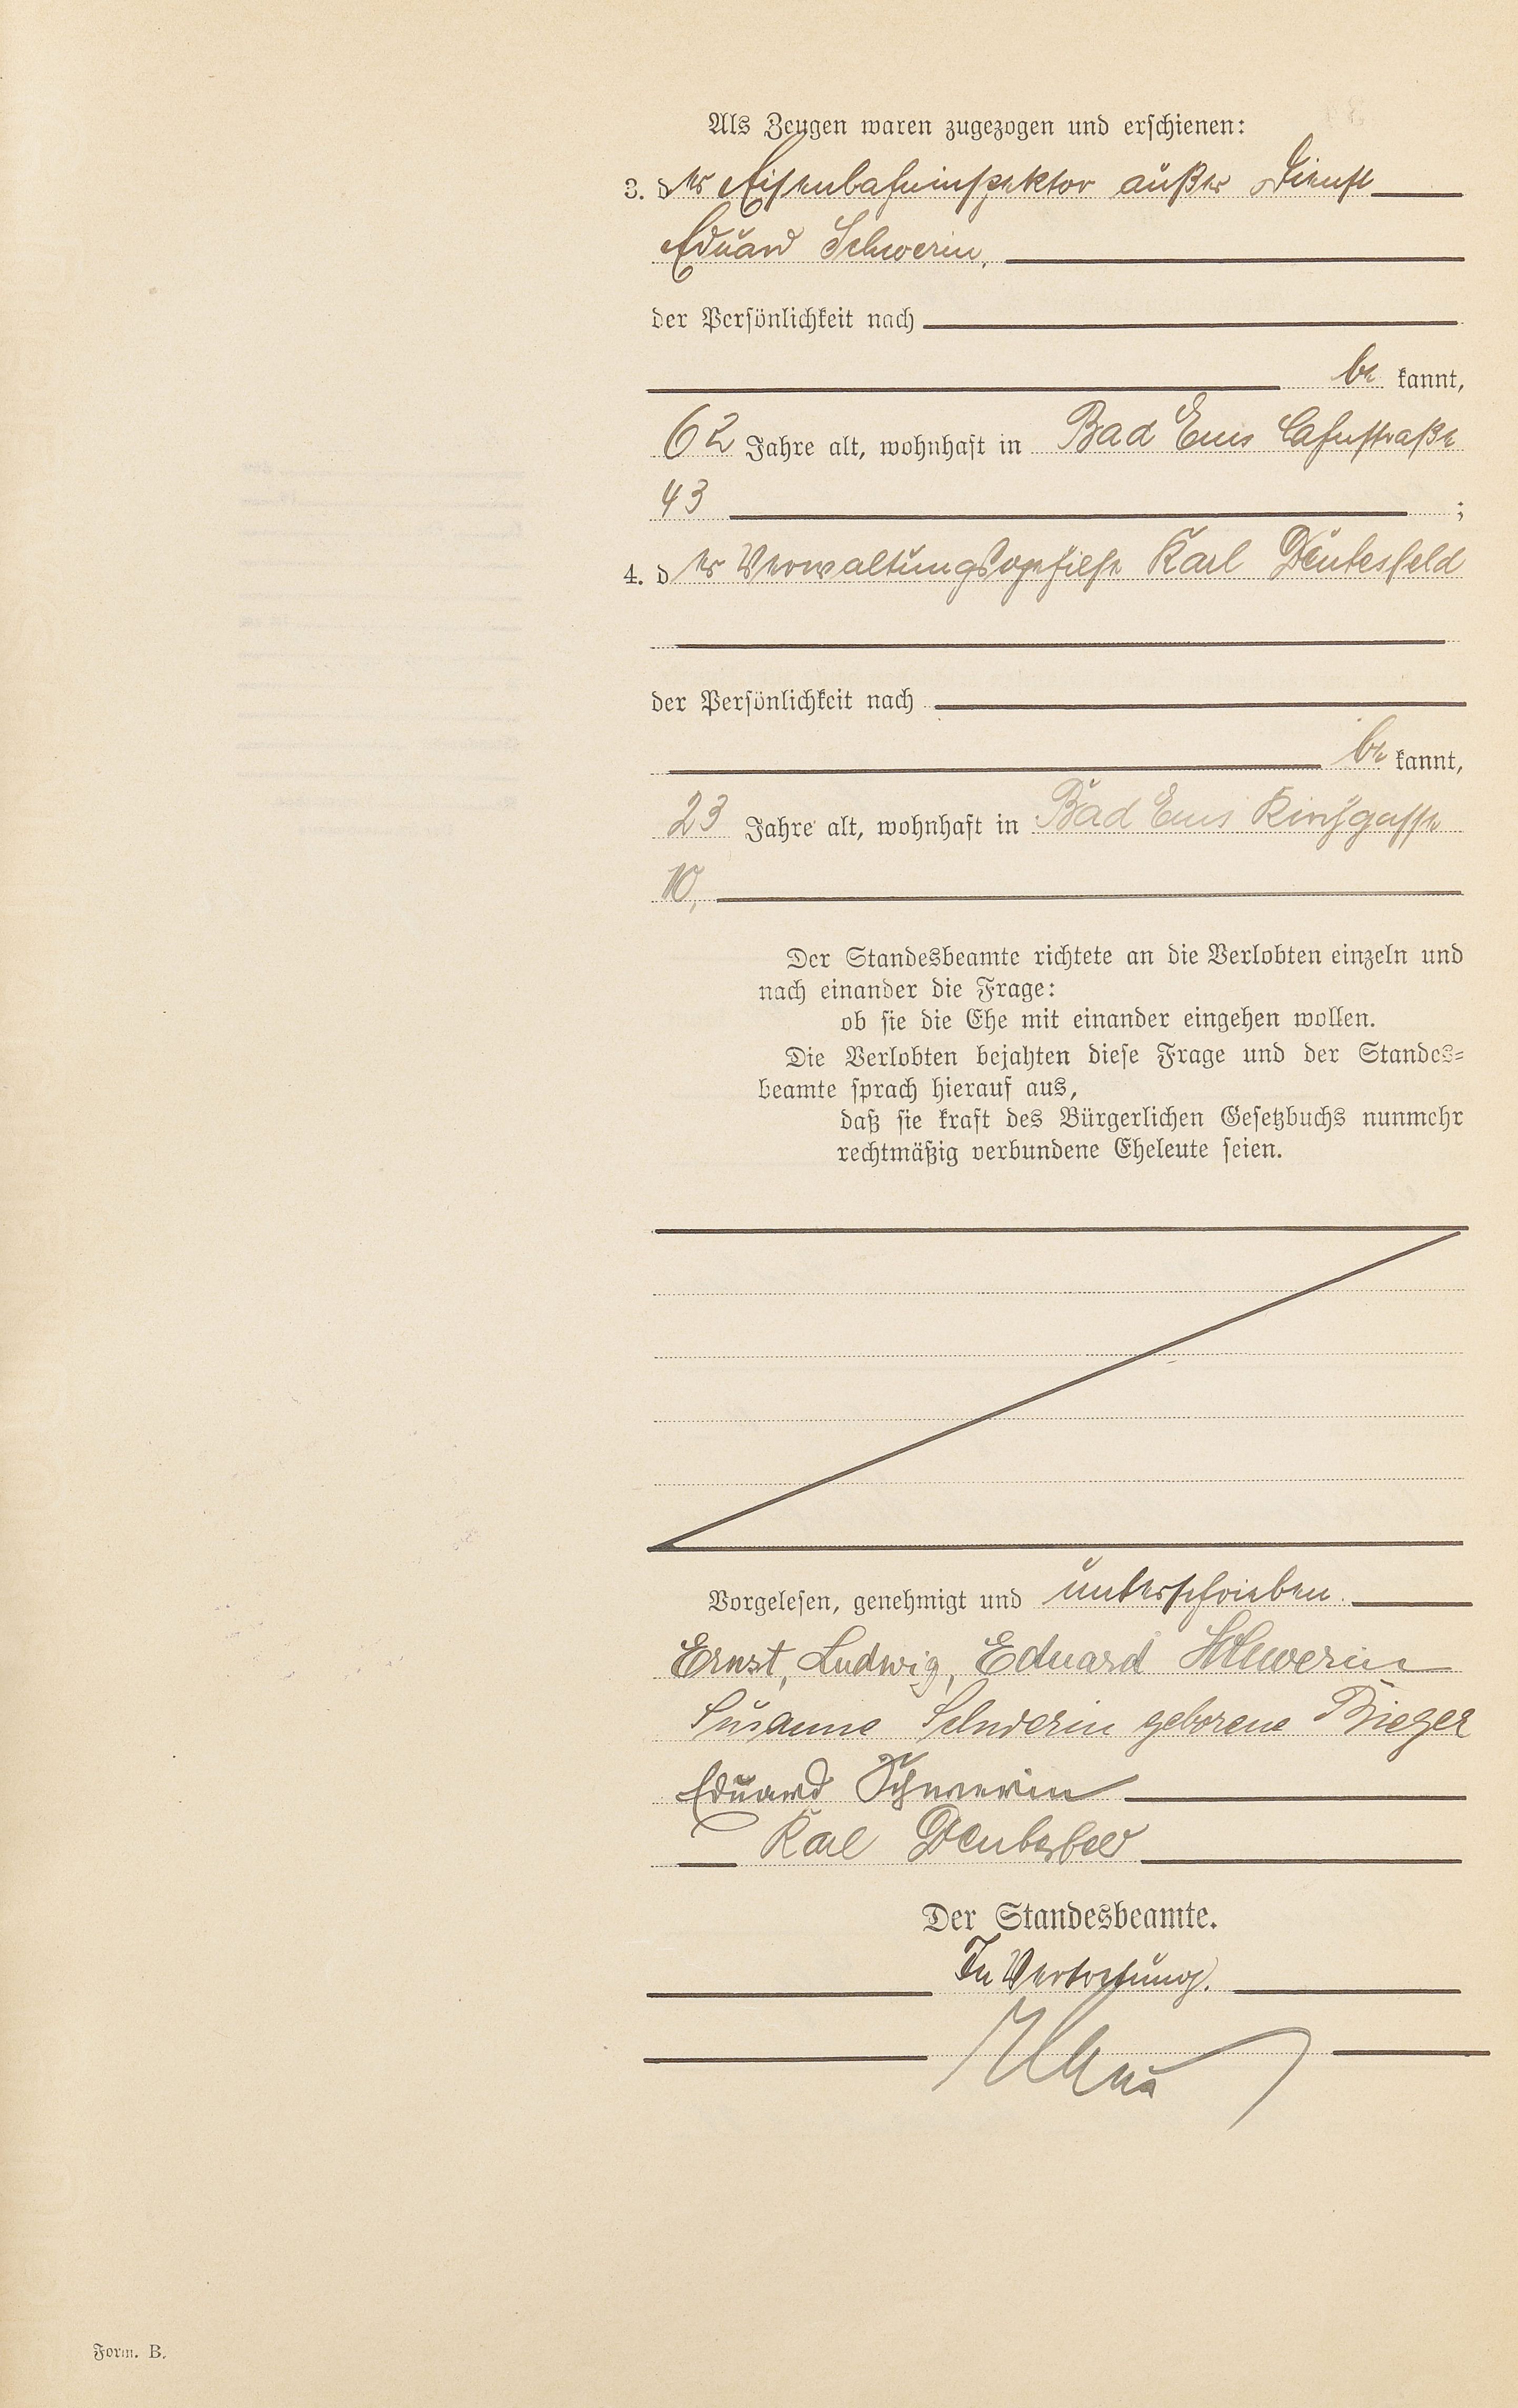 Als Zeugen waren zugezogen und erschienen:
3. der Eisenbahninspektor außer Dienst
Eduard Schwerin,
der Persönlichkeit nach
be kannt,
62 Jahre alt, wohnhaft in Bad Ems Lahnstraße
43 ;
4. der Verwaltungsgehilfe Karl Deutesfeld
der Persönlichkeit nach
be kannt,
23 Jahre alt, wohnhaft in Bad Ems Kirchgasse
10,
Der Standesbeamte richtete an die Verlobten einzeln und
nach einander die Frage:
ob sie die Ehe mit einander eingehen wollen.
Die Verlobten bejahten diese Frage und der Standes-
beamte sprach hierauf aus,
daß sie kraft des Bürgerlichen Gesetzbuchs nunmehr
rechtmäßig verbundene Eheleute seien.
Vorgelesen, genehmigt und unterschrieben.
Ernst, Ludwig, Eduard Schwerin
Susanne Schwerin geborene Bieger
Eduard Schwerin
Karl Deutesfeld
Der Standesbeamte.
In Vertretung.
Form. B.